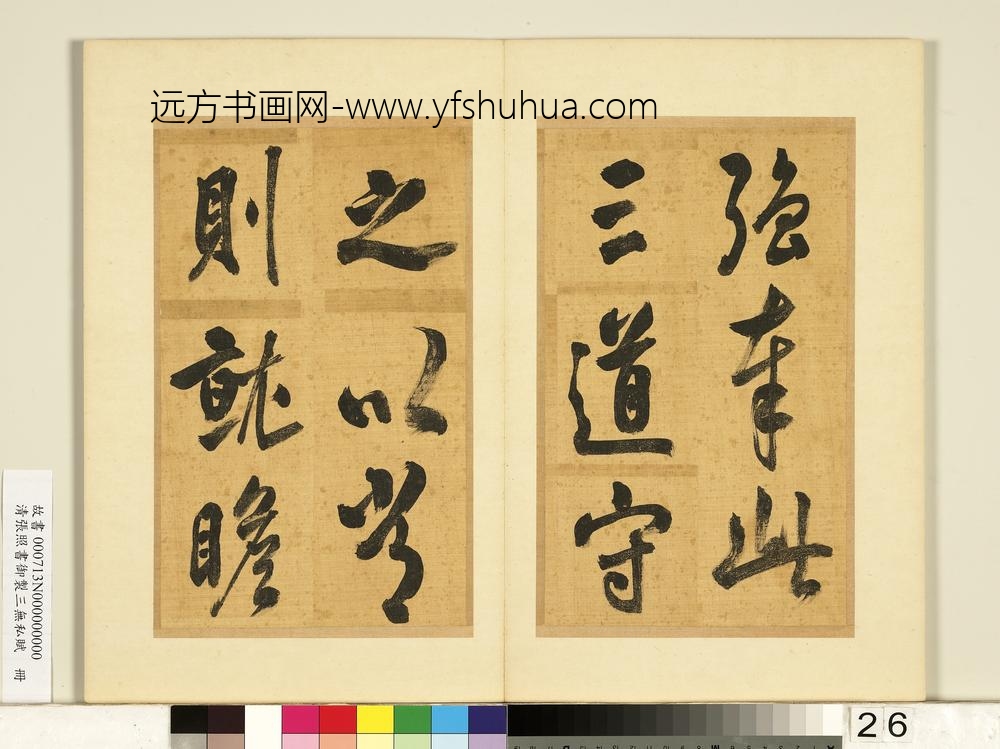 远方书画网-www.yfshuhua.com
強奉此
三道守
之以為
則就瞻
故書000713N000000000
清張照書御製三無私賦 冊
26